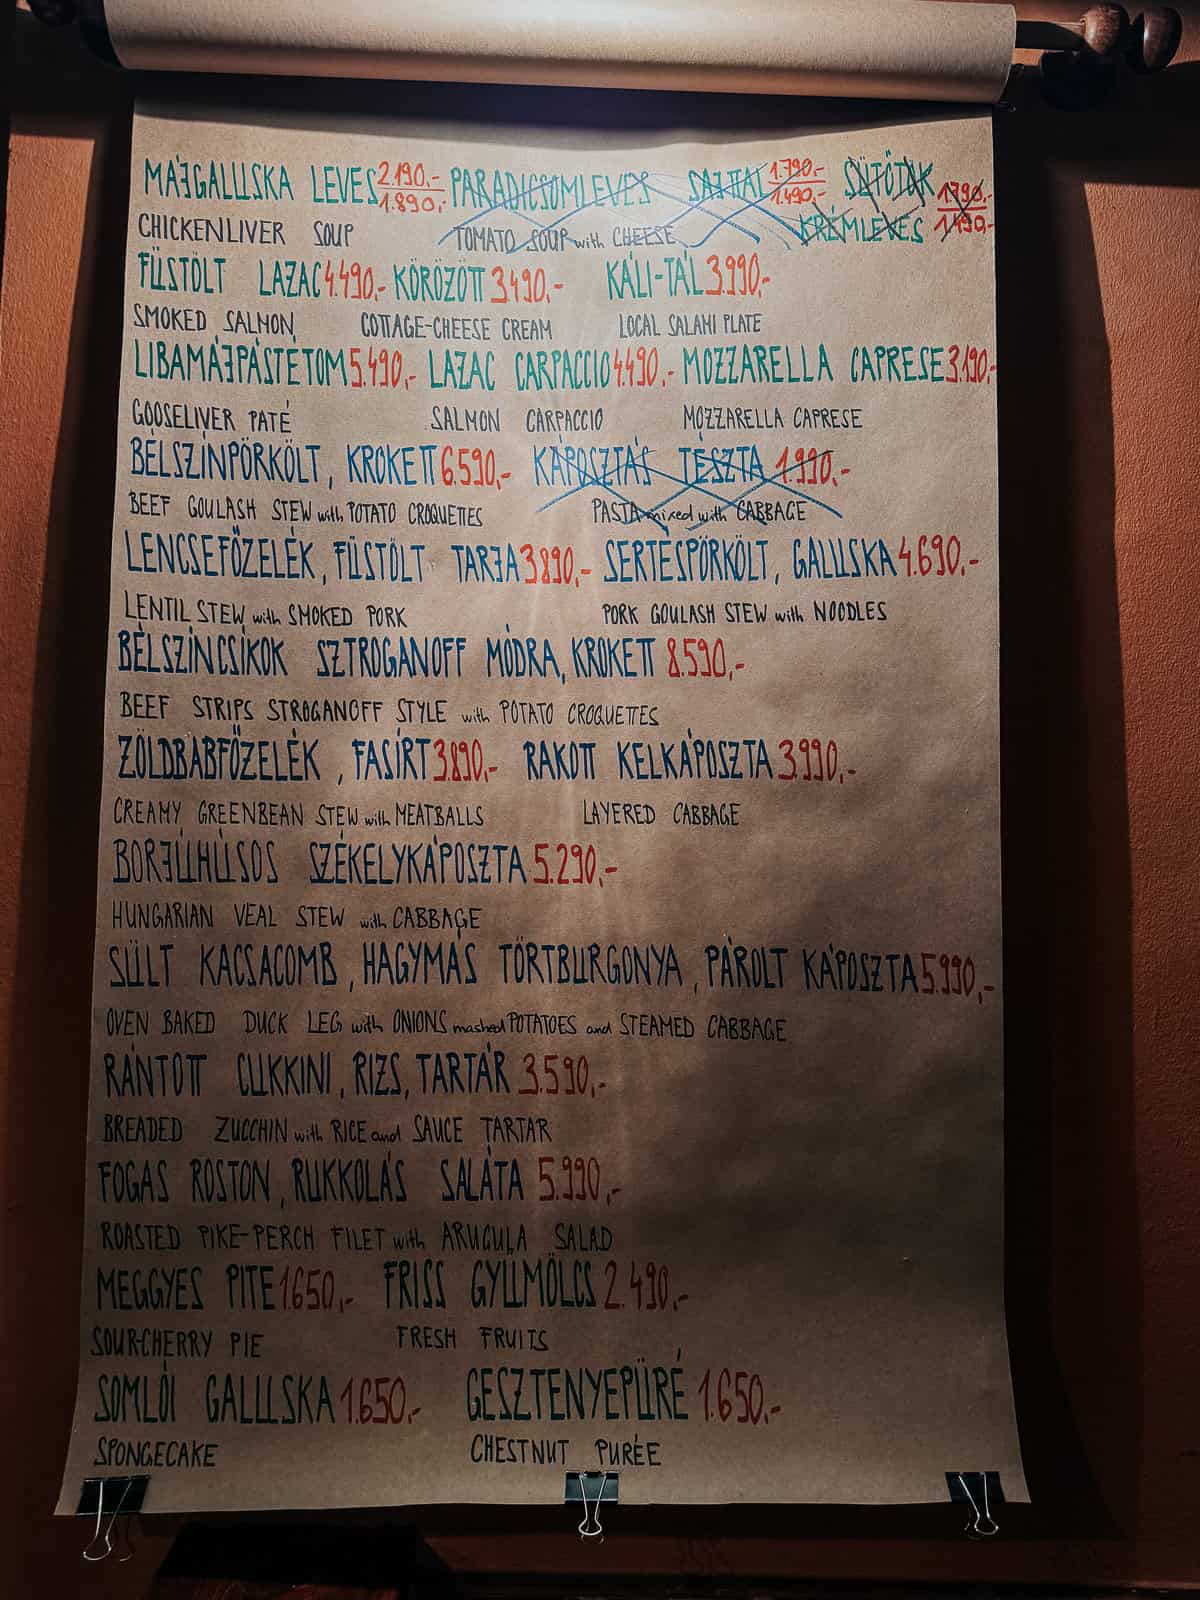 MÁJGALUSKA LEVES 2.190,- 1.890,- PARADICSOMLEVES SAJTTAL 1.790,- 1.490,- SÜTŐTÖK KRÉMLEVES 1.790,- 1.490,-
CHICKENLIVER SOUP TOMATO SOUP with CHEESE
FÜSTÖLT LAZAC 4.490,- KÖRÖZÖTT 3.490,- KÁLI-TÁL 3.990,-
SMOKED SALMON COTTAGE-CHEESE CREAM LOCAL SALAMI PLATE
LIBAMÁJPÁSTÉTOM 5.490,- LAZAC CARPACCIO 4.490,- MOZZARELLA CAPRESE 3.190,-
GOOSELIVER PATÉ SALMON CARPACCIO MOZZARELLA CAPRESE
BÉLSZÍNPÖRKÖLT, KROKETT 6.590,- KÁPOSZTÁS TÉSZTA 1.990,-
BEEF GOULASH STEW with POTATO CROQUETTES PASTA mixed with CABBAGE
LENCSEFŐZELÉK, FÜSTÖLT TARJA 3.890,- SERTÉSPÖRKÖLT, GALUSKA 4.690,-
LENTIL STEW with SMOKED PORK PORK GOULASH STEW with NOODLES
BÉLSZÍNCSÍKOK SZTROGANOFF MÓDRA, KROKETT 8.590,-
BEEF STRIPS STROGANOFF STYLE with POTATO CROQUETTES
ZÖLDBABFŐZELÉK, FASÍRT 3.890,- RAKOTT KELKÁPOSZTA 3.990,-
CREAMY GREENBEAN STEW with MEATBALLS LAYERED CABBAGE
BORJÚHÚSOS SZÉKELYKÁPOSZTA 5.290,-
HUNGARIAN VEAL STEW with CABBAGE
SÜLT KACSACOMB, HAGYMÁS TÖRTBURGONYA, PÁROLT KÁPOSZTA 5.990,-
OVEN BAKED DUCK LEG with ONIONS mashed POTATOES and STEAMED CABBAGE
RÁNTOTT CUKKINI, RIZS, TARTÁR 3.590,-
BREADED ZUCCHIN with RICE and SAUCE TARTAR
FOGAS ROSTON, RUKKOLÁS SALÁTA 5.990,-
ROASTED PIKE-PERCH FILET with ARUGULA SALAD
MEGGYES PITE 1.650,- FRISS GYÜMÖLCS 2.490,-
SOUR-CHERRY PIE FRESH FRUITS
SOMLÓI GALUSKA 1.650,- GESZTENYEPÜRÉ 1.650,-
SPONGECAKE CHESTNUT PURÉE